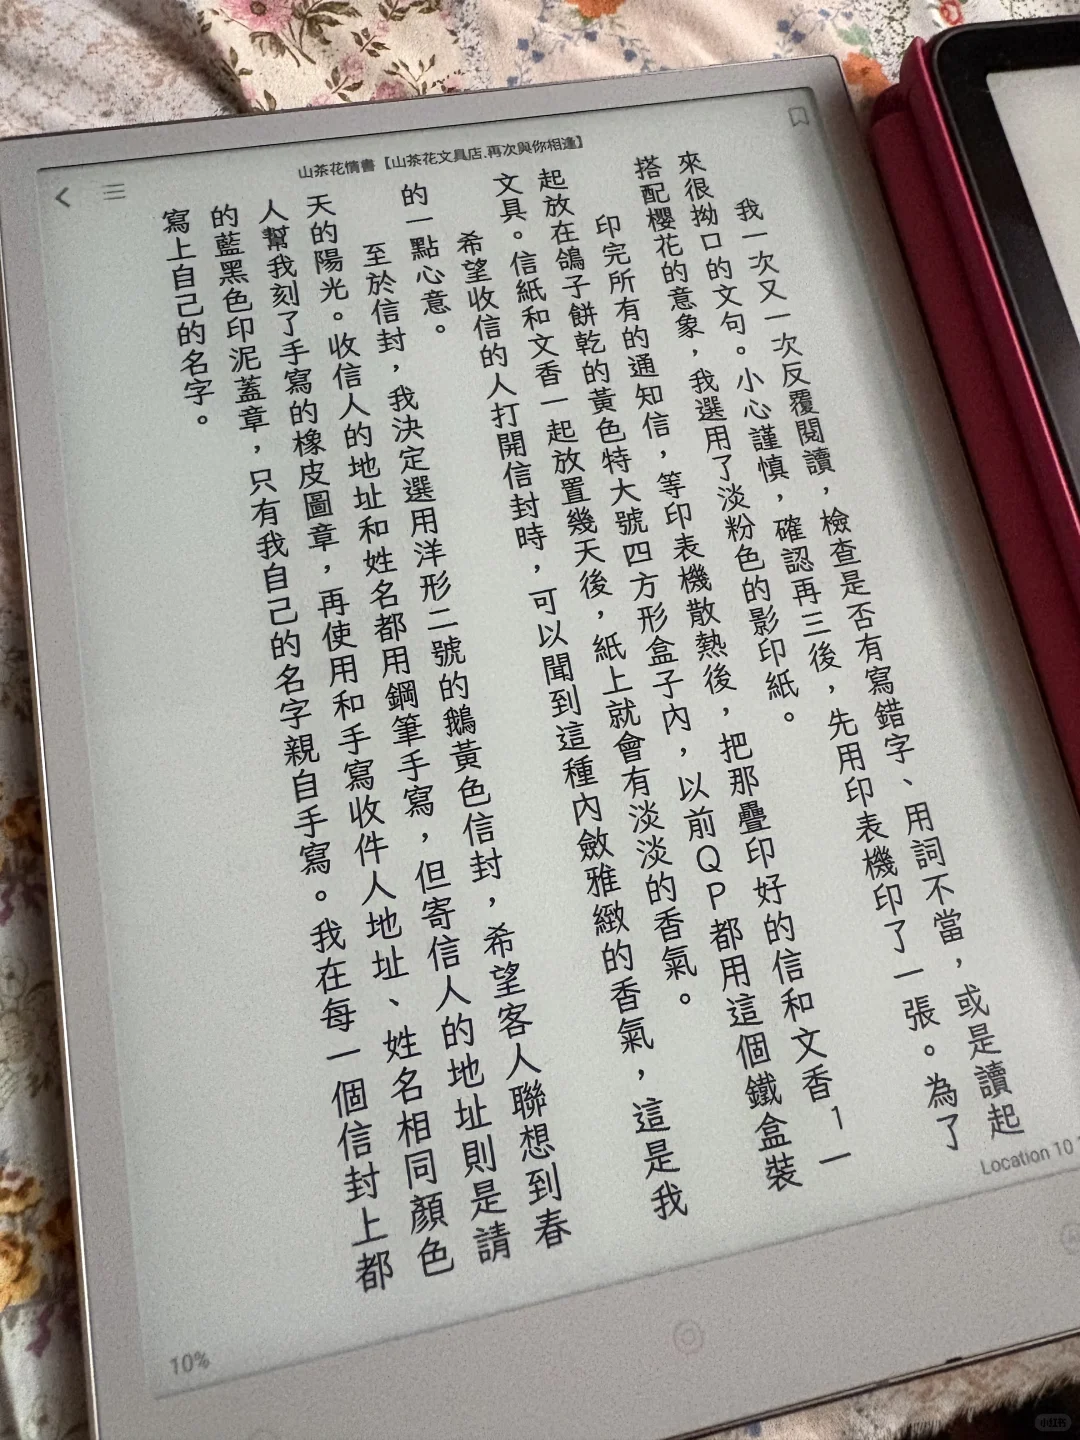 山茶花情書【山茶花文具店.再次與你相逢】
我一次又一次反覆閱讀，檢查是否有寫錯字、用詞不當，或是讀起
來很拗口的文句。小心謹慎，確認再三後，先用印表機印了一張。為了
搭配櫻花的意象，我選用了淡粉色的影印紙。
印完所有的通知信，等印表機散熱後，把那疊印好的信和文香1一
起放在鴿子餅乾的黃色特大號四方形盒子內，以前QP都用這個鐵盒裝
文具。信紙和文香一起放置幾天後，紙上就會有淡淡的香氣。
希望收信的人打開信封時，可以聞到這種內斂雅緻的香氣，這是我
的一點心意。
至於信封，我決定選用洋形二號的鵝黃色信封，希望客人聯想到春
天的陽光。收信人的地址和姓名都用鋼筆手寫，但寄信人的地址則是請
人幫我刻了手寫的橡皮圖章，再使用和手寫收件人地址、姓名相同顏色
的藍黑色印泥蓋章，只有我自己的名字親自手寫。我在每一個信封上都
寫上自己的名字。
Location 10
10%
小红书